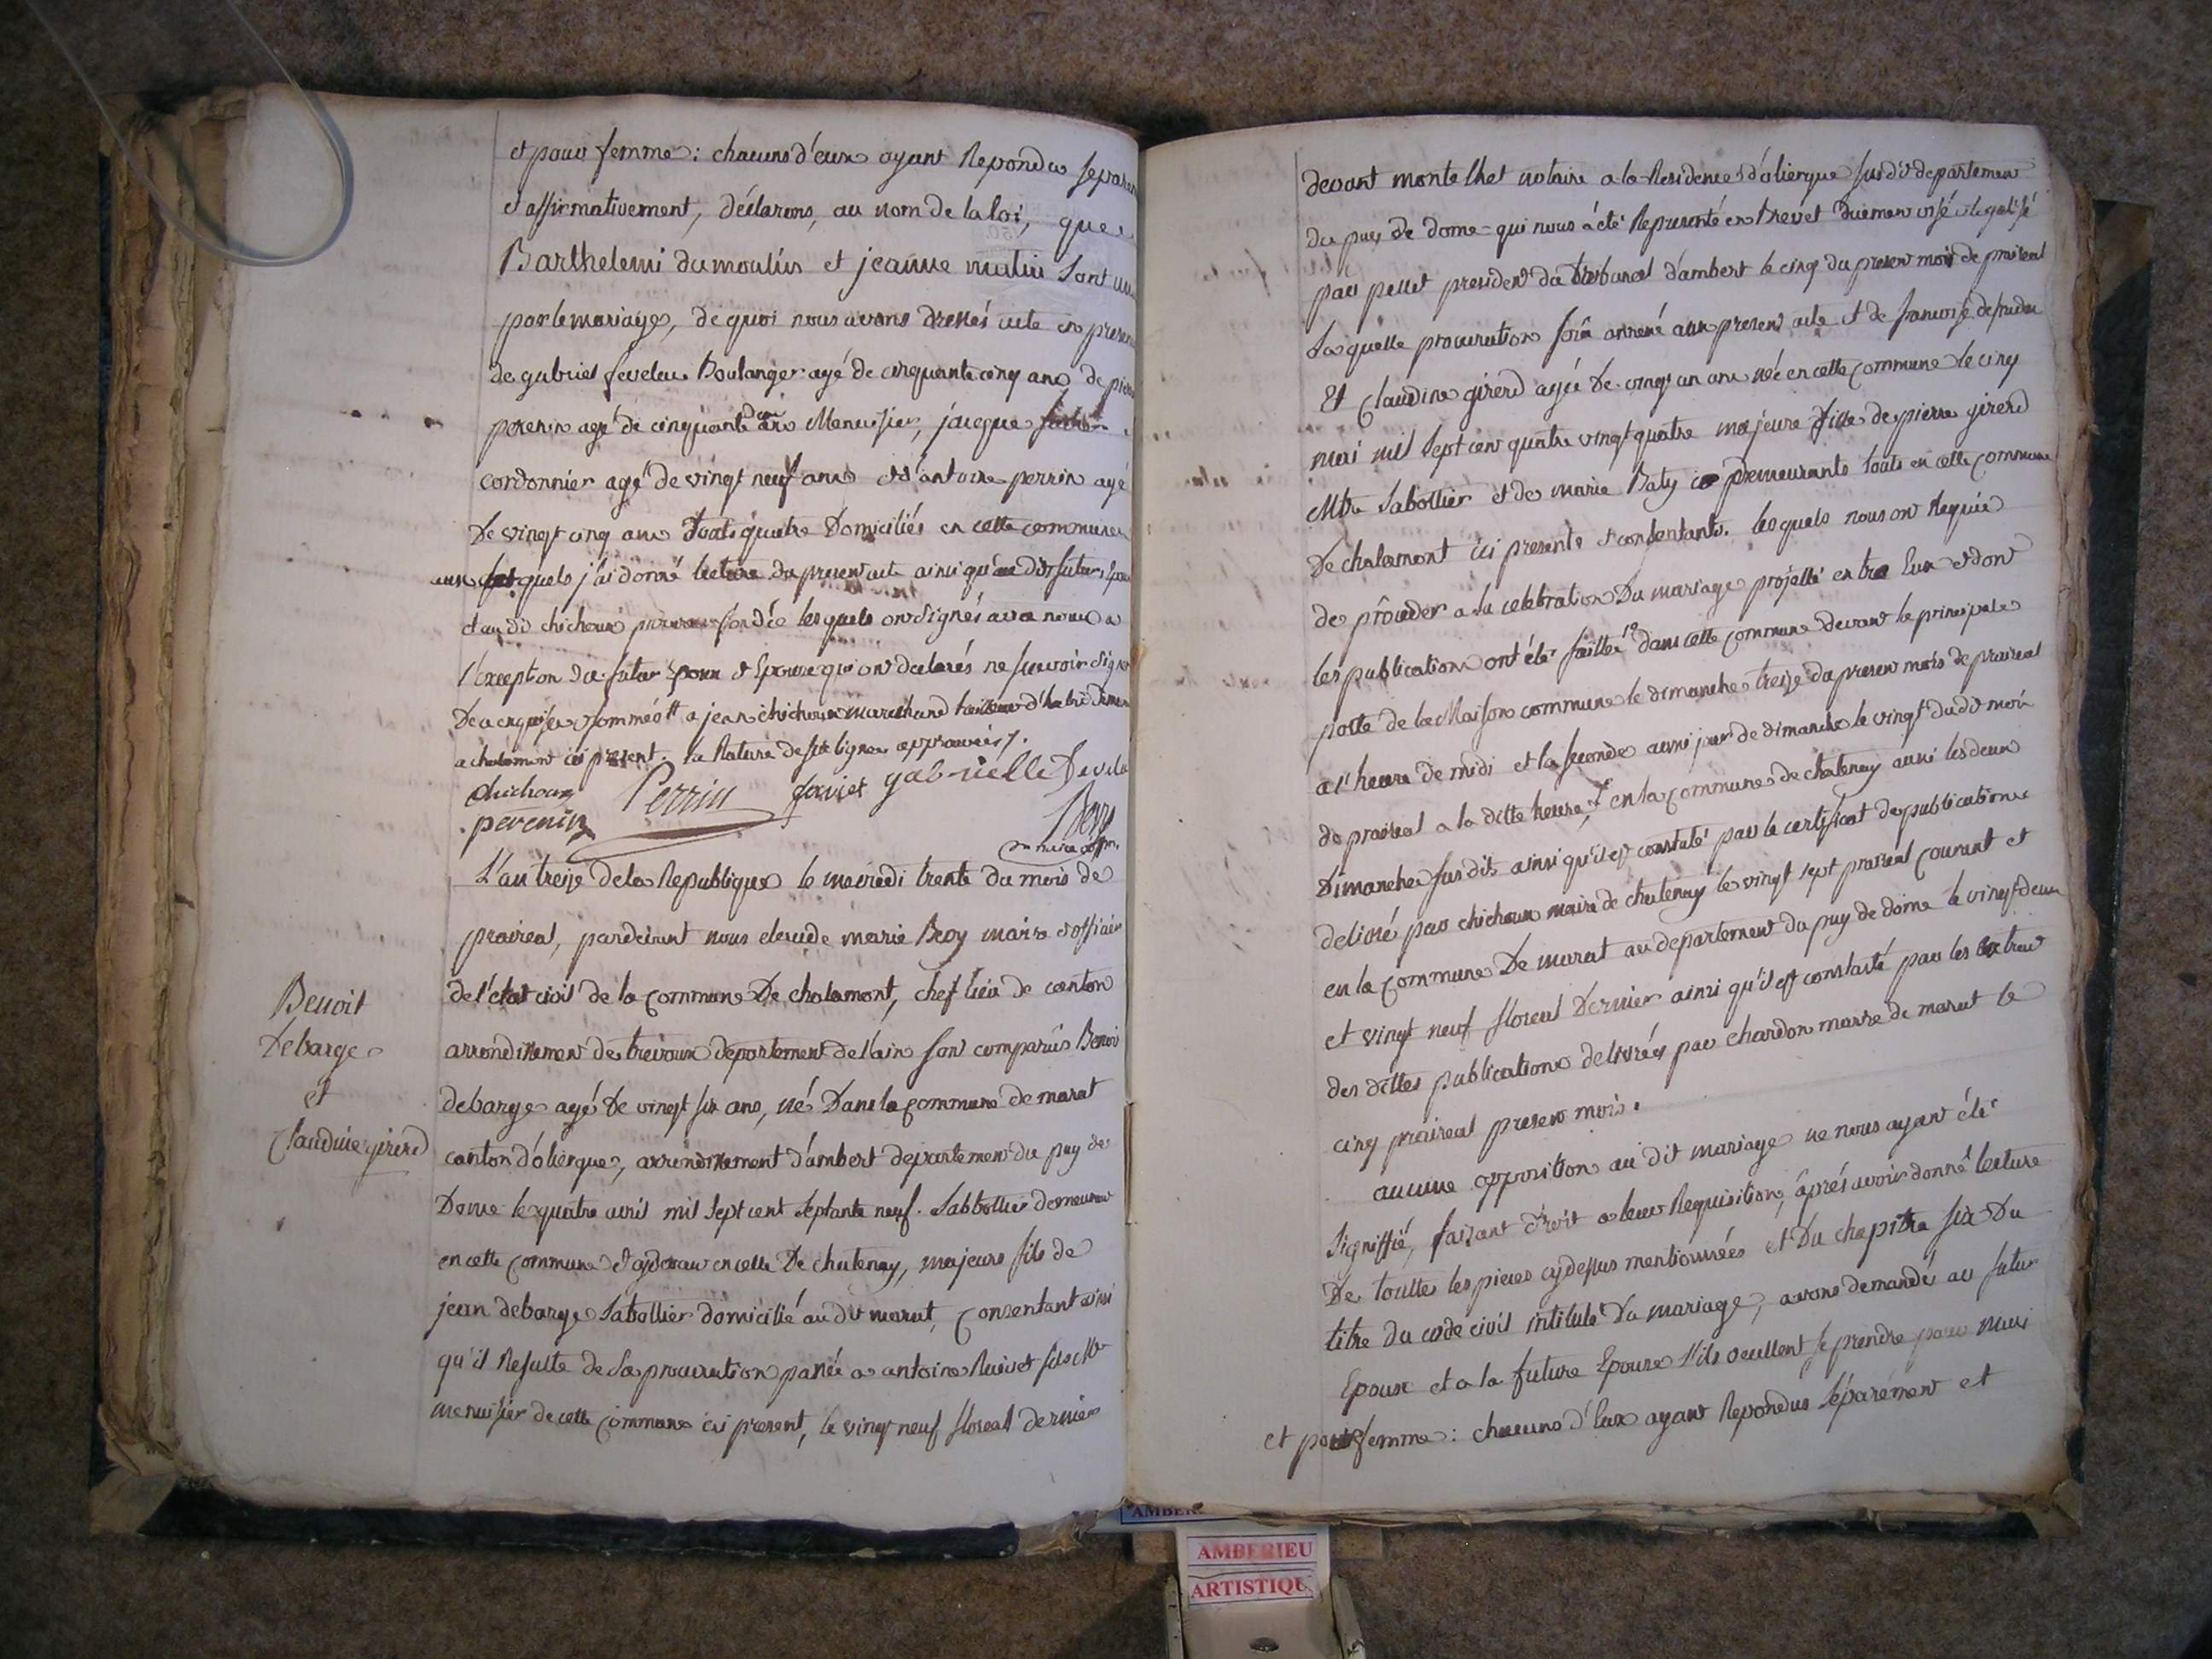 et pour femme: chacuns d'eux ayant Repondu separem
et affirmativement, déclarons, au nom de la loi, que
Barthelemi dumoulin et jeanne mutin sont uni
par le mariage, de quoi nous avons dressés acte en presen
de gabriel feveleu Boulanger agé de cinquante cinq ans, de pier
perenin agé de cinquante deux ans Menuisier, jacque
cordonnier agé de vingt neuf ans et d'antoine perrin agé
De vingt cinq ans touts quatre Domiciliés en cette commune
aux quels j'ai donné lecture du present acte ainsi qu'au dit futurs Epou
et au dit chichoux fondée les quels ont signés avec nous a
l'exception du futur Epoux et Epouse qui ont declarés ne savoir signer
De ce enquis et sommés a jean chichoux marchand tailleur d'habit demeu
a chalamont ici present. la Rature de ligne approuvée
chichoux Perrin gabrielle Devele
perenin Beoy
maire
L'an treize de la Republique le mecredi trente du mois de
praireal, pardevant nous claude marie Beoy maire et officier
de l'état civil de la commune De chalamont, chef lieu de canton
Benoit
Debarge
et
Claudine girerd
arrondissement de trevoux departement de l'ain sont comparus Benoi
debarge agé De vingt six ans, né Dans la commune de marat
canton d'oliergue, arrondissement d'ambert departement du puy de
Dome le quatre avril mil sept cent septante neuf. Sabottier demeurant
en cette commune et en celle De chatenay, majeurs fils de
jean debarge Sabottier domicilié au dit marat, Consentant ainsi
qu'il Resulte de sa procuration passée a antoine Ruivet fils
menuisier de cette commune ici present, le vingt neuf floreal dernier
devant montelhet notaire a la Residence d'oliergue susdit departement
du puy de dome qui nous a été Representé en Brevet duement visé et legalisé
par pellet president du tribunal d'ambert le cinq du present mois de praireal
la quelle procuration sera annexé au present acte et de francoise
Et Claudine girerd agée De vingt un ans née en cette Commune le cinq
mai mil sept cent quatre vingt quatre majeure fille de pierre girerd
Mtre Sabottier et de marie Baty demeurants touts en cette commune
De chalamont ici presents et consentants. les quels nous ont Requis
de procéder a la celebration Du mariage projetté entre Eux et dont
les publications ont été faittes 1o dans cette Commune devant la principale
porte de la Maison commune le dimanche treize du present mois de prairial
a l'heure de midi et la seconde aussi jour de dimanche le vingt dudit mois
de prairial a la ditte heure, 2o en la commune de chatenay aussi les deux
Dimanches susdits ainsi qu'il est constaté par le certificat de publications
delivré par chichoux maire de chatenay le vingt sept prairial Courant et
en la Commune De marat au departement du puy de dome le vingt deux
et vingt neuf floreal Dernier ainsi qu'il est constaté par les extrait
des dittes publications delivrés par chardon maire de marat le
cinq prairial present mois.
aucune opposition au dit mariage ne nous ayant été
signiffié, faisant droit a leur Requisition, après avoir donné lecture
De touttes les pieces cydessus mentionnées et Du chapitre six Du
titre du code civil intitulé Du mariage, avons demandés au futur
Epoux et a la future Epouse s'ils veullent se prendre pour mari
et pour femme: chacuns d'Eux ayant Repondus séparément et
AMBERIEU
ARTISTIQU